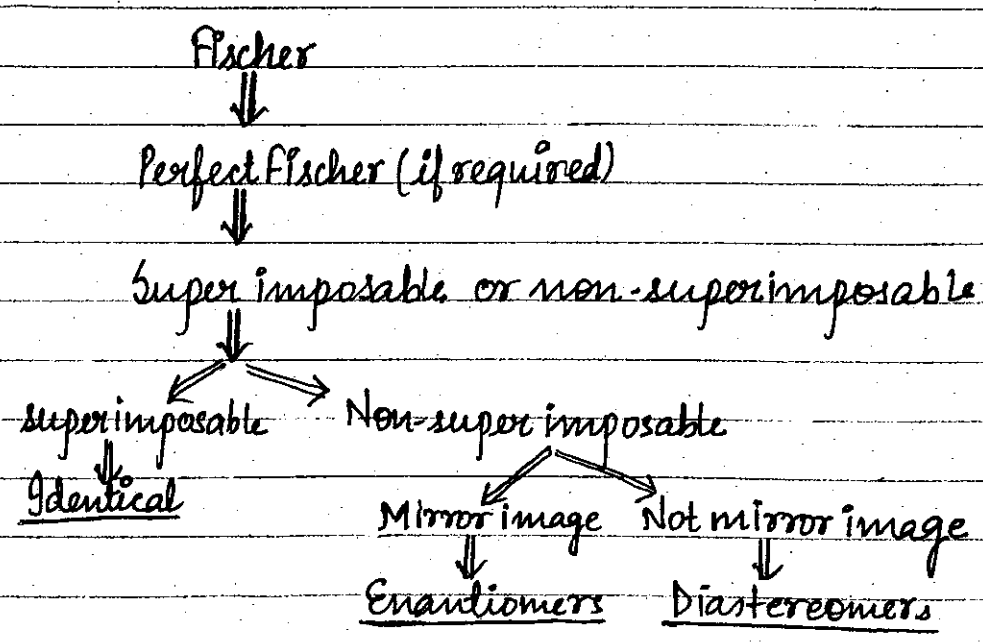 Fischer
Perfect Fischer (if required)
Super imposable or non-superimposable
superimposable Non-super imposable
Identical
Mirror image Not mirror image
Enantiomers Diastereomers